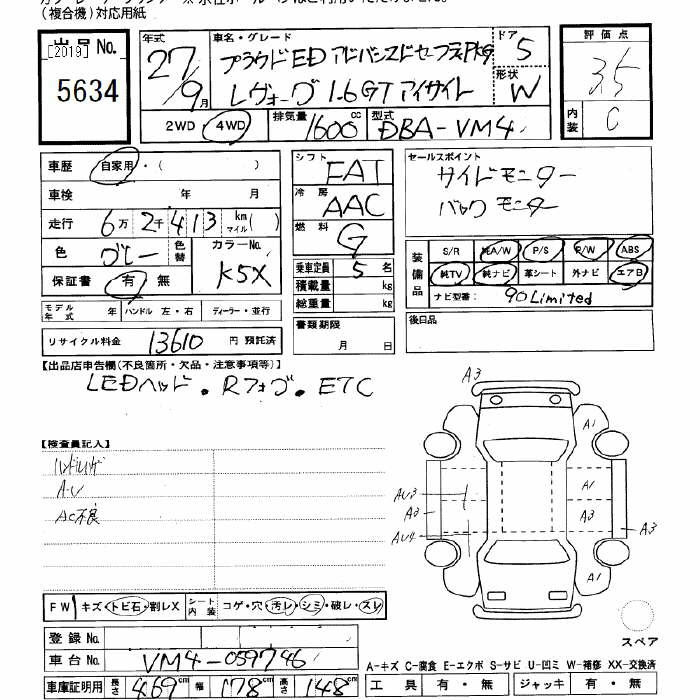 (複合機)対応用紙
出品No.
[2019]
5634
年式
27/9月
車名・グレード
プラウドED アドバンスドセーフティPkg
レヴォーグ 1.6GT アイサイト
ドア 5
形状 W
評価点
3.5
内装 C
2WD 4WD
排気量 1600 cc
型式 DBA-VM4
車歴 自家用・( )
車検 年 月
走行 6万2千413 km マイル( )
色 グレー 色替
カラーNo. K5X
保証書 有 無
モデル年式 年 ハンドル 左・右 ディーラー・並行
リサイクル料金 13610 円 預託済
シフト FAT
冷房 AAC
燃料 G
乗車定員 5 名
積載量 kg
総重量 kg
書類期限
月 日
セールスポイント
サイドモニター
バックモニター
装備品
S/R 純A/W P/S P/W ABS
純TV 純ナビ 革シート 外ナビ エアB
ナビ型番: 90Limited
後日品
【出品店申告欄(不良箇所・欠品・注意事項等)】
LEDヘッド . Rフォグ . ETC
【検査員記入】
A-U
AC不良
A3
A1
AU3
A1
A3
A3
A3
AU4
A1
スペア
FW キズ・トビ石・割レX シート内装 コゲ・穴・汚レ・シミ・破レ・スレ
登録No.
車台No. VM4-059746
車庫証明用 長さ 469cm 幅 178cm 高さ 148cm
A-キズ C-腐食 E-エクボ S-サビ U-凹ミ W-補修 XX-交換済
工具 有・無 ジャッキ 有・無